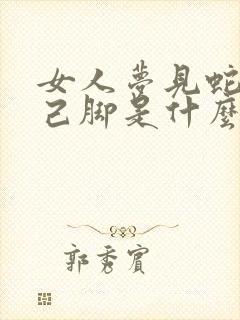 女人夢見蛇
己脚是什麼
郭秀賓